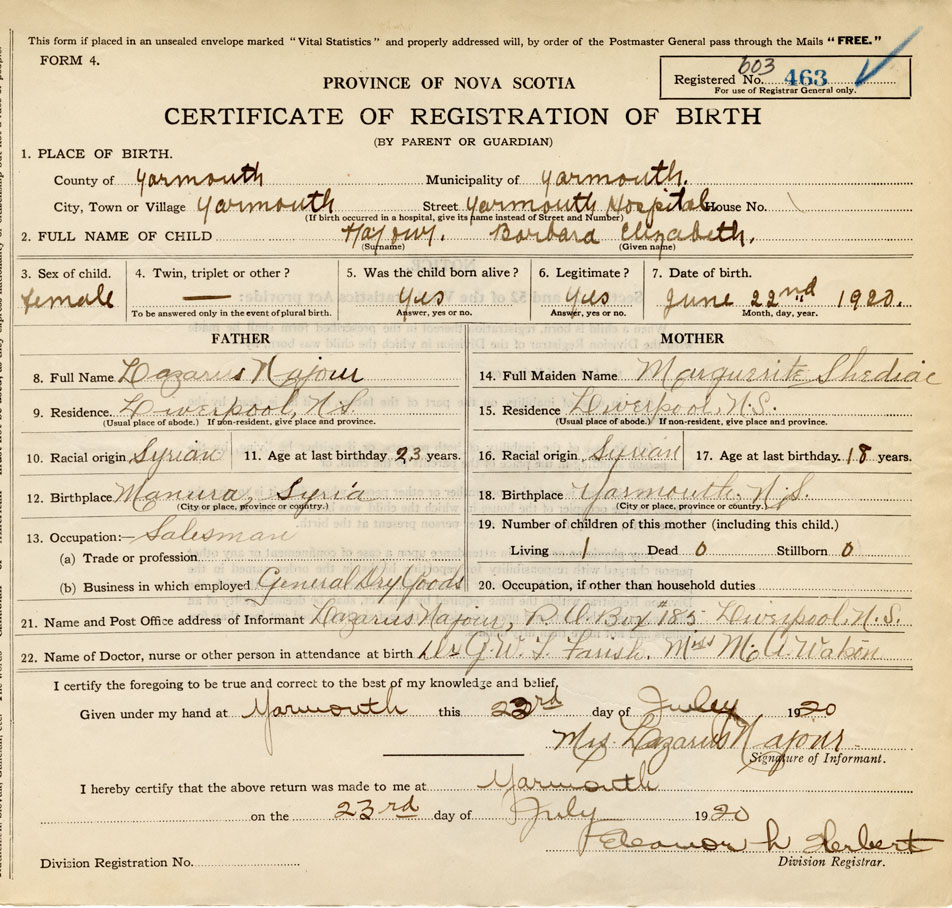 This form if placed in an unsealed envelope marked "Vital Statistics" and properly addressed will, by order of the Postmaster General pass through the Mails "FREE."
FORM 4.
603
Registered No. 463
For use of Registrar General only.
PROVINCE OF NOVA SCOTIA
CERTIFICATE OF REGISTRATION OF BIRTH
(BY PARENT OR GUARDIAN)
1. PLACE OF BIRTH.
County of Yarmouth Municipality of Yarmouth.
City, Town or Village Yarmouth Street Yarmouth Hospital House No.
(If birth occurred in a hospital, give its name instead of Street and Number)
2. FULL NAME OF CHILD Najour. Barbara Elizabeth.
(Surname) (Given name)
3. Sex of child. 4. Twin, triplet or other? 5. Was the child born alive? 6. Legitimate? 7. Date of birth.
female — Yes Yes June 22nd 1920.
To be answered only in the event of plural birth. Answer, yes or no. Answer, yes or no. Month, day, year.
FATHER MOTHER
8. Full Name Lazarus Najour 14. Full Maiden Name Marguerite Shediac
9. Residence. Liverpool, N.S. 15. Residence Liverpool, N.S.
(Usual place of abode.) If non-resident, give place and province. (Usual place of abode.) If non-resident, give place and province.
10. Racial origin Syrian 11. Age at last birthday 23 years. 16. Racial origin Syrian 17. Age at last birthday. 18 years.
12. Birthplace Syria 18. Birthplace Yarmouth, N.S.
(City or place, province or country.) (City or place, province or country.)
13. Occupation:— Salesman 19. Number of children of this mother (including this child.)
(a) Trade or profession Living 1 Dead 0 Stillborn 0
(b) Business in which employed General Dry Goods 20. Occupation, if other than household duties
21. Name and Post Office address of Informant Lazarus Najour, P.O. Box 185 Liverpool, N.S.
22. Name of Doctor, nurse or other person in attendance at birth Dr G.W.T. Farish. Miss M. A. Watson
I certify the foregoing to be true and correct to the best of my knowledge and belief,
Given under my hand at Yarmouth this 23rd day of July 1920
Mrs. Lazarus Najour
Signature of Informant.
I hereby certify that the above return was made to me at Yarmouth
on the 23rd day of July 1920
Eleanor L Herbert
Division Registration No. Division Registrar.